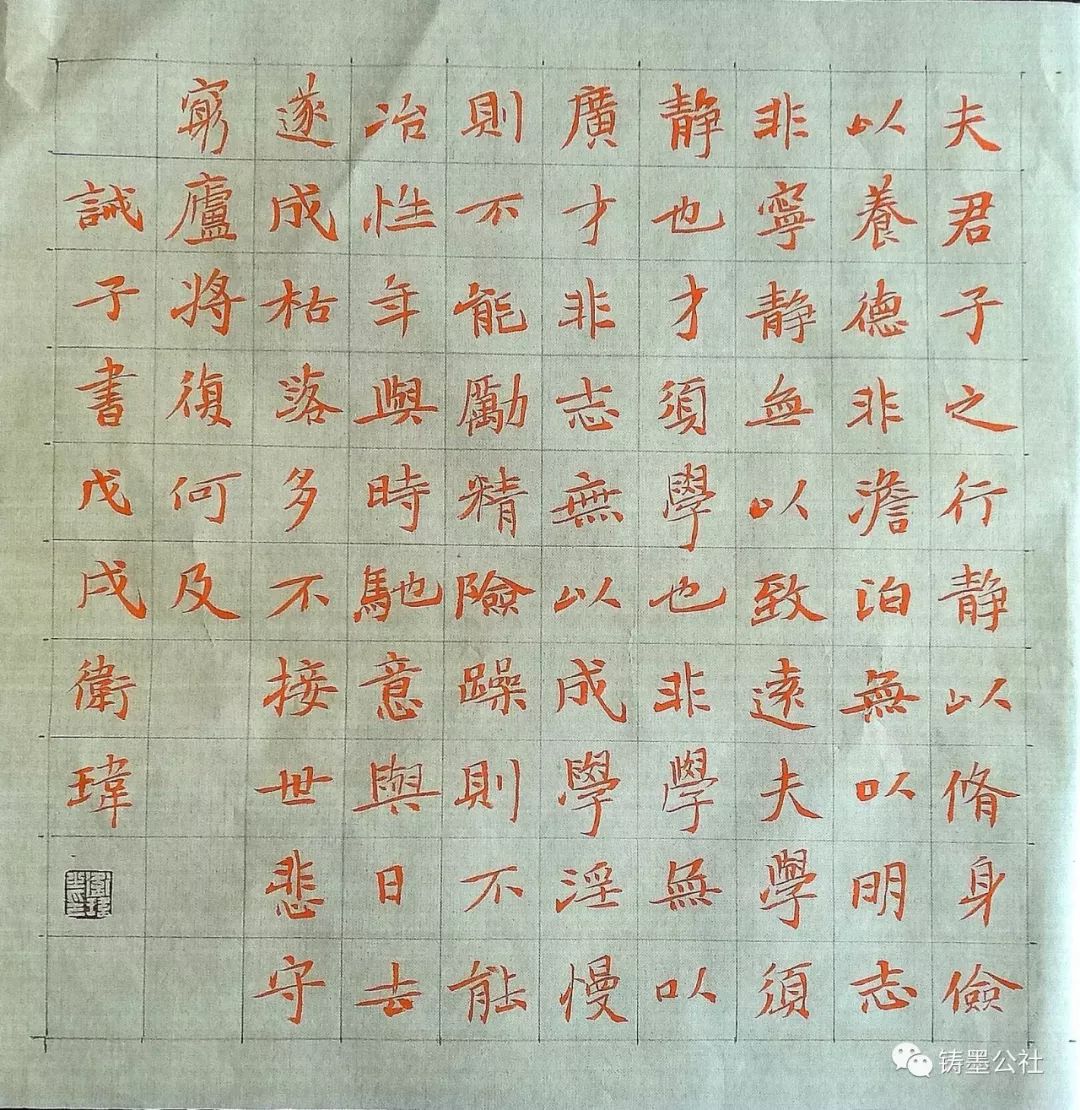 夫君子之行静以脩身儉
以養德非澹泊無以明志
非寧静無以致遠夫學須
静也才須學也非學無以
廣才非志無以成學淫慢
則不能勵精險躁則不能
冶性年與時馳意與日去
遂成枯落多不接世悲守
窮廬將復何及
誡子書戊戌衛瑋
铸墨公社